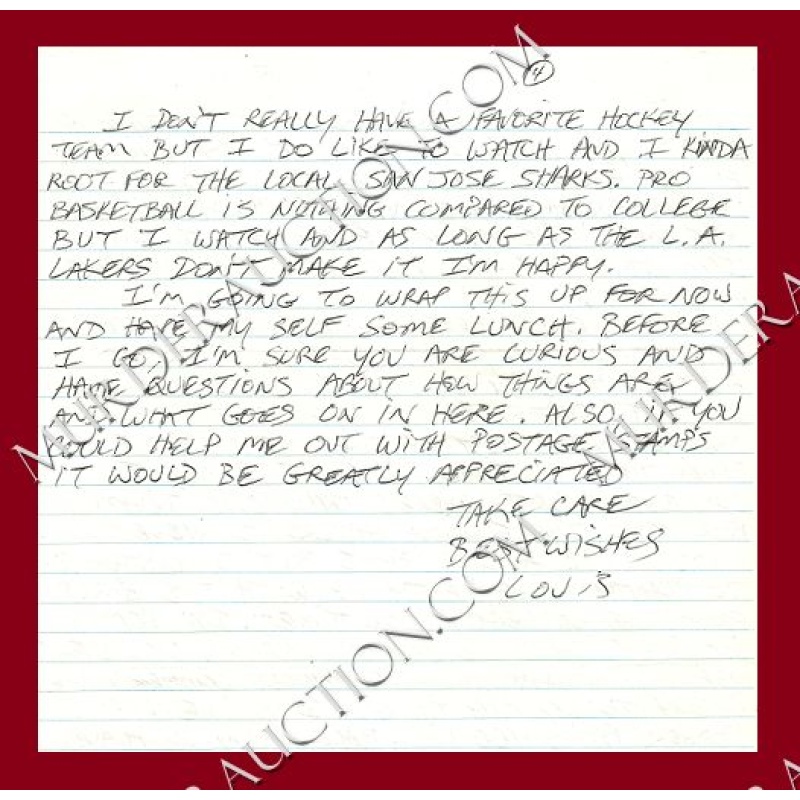 4
I DON'T REALLY HAVE A FAVORITE HOCKEY
TEAM BUT I DO LIKE TO WATCH AND I KINDA
ROOT FOR THE LOCAL SAN JOSE SHARKS. PRO
BASKETBALL IS NOTHING COMPARED TO COLLEGE
BUT I WATCH AND AS LONG AS THE L.A.
LAKERS DON'T MAKE IT I'M HAPPY.
I'M GOING TO WRAP THIS UP FOR NOW
AND HAVE MY SELF SOME LUNCH. BEFORE
I GO, I'M SURE YOU ARE CURIOUS AND
HAVE QUESTIONS ABOUT HOW THINGS ARE,
AND WHAT GOES ON IN HERE. ALSO, IF YOU
COULD HELP ME OUT WITH POSTAGE STAMPS
IT WOULD BE GREATLY APPRECIATED
TAKE CARE
BEST WISHES
LOUIS
MURDERAUCTION.COM
MURDERA
AUCTION.COM